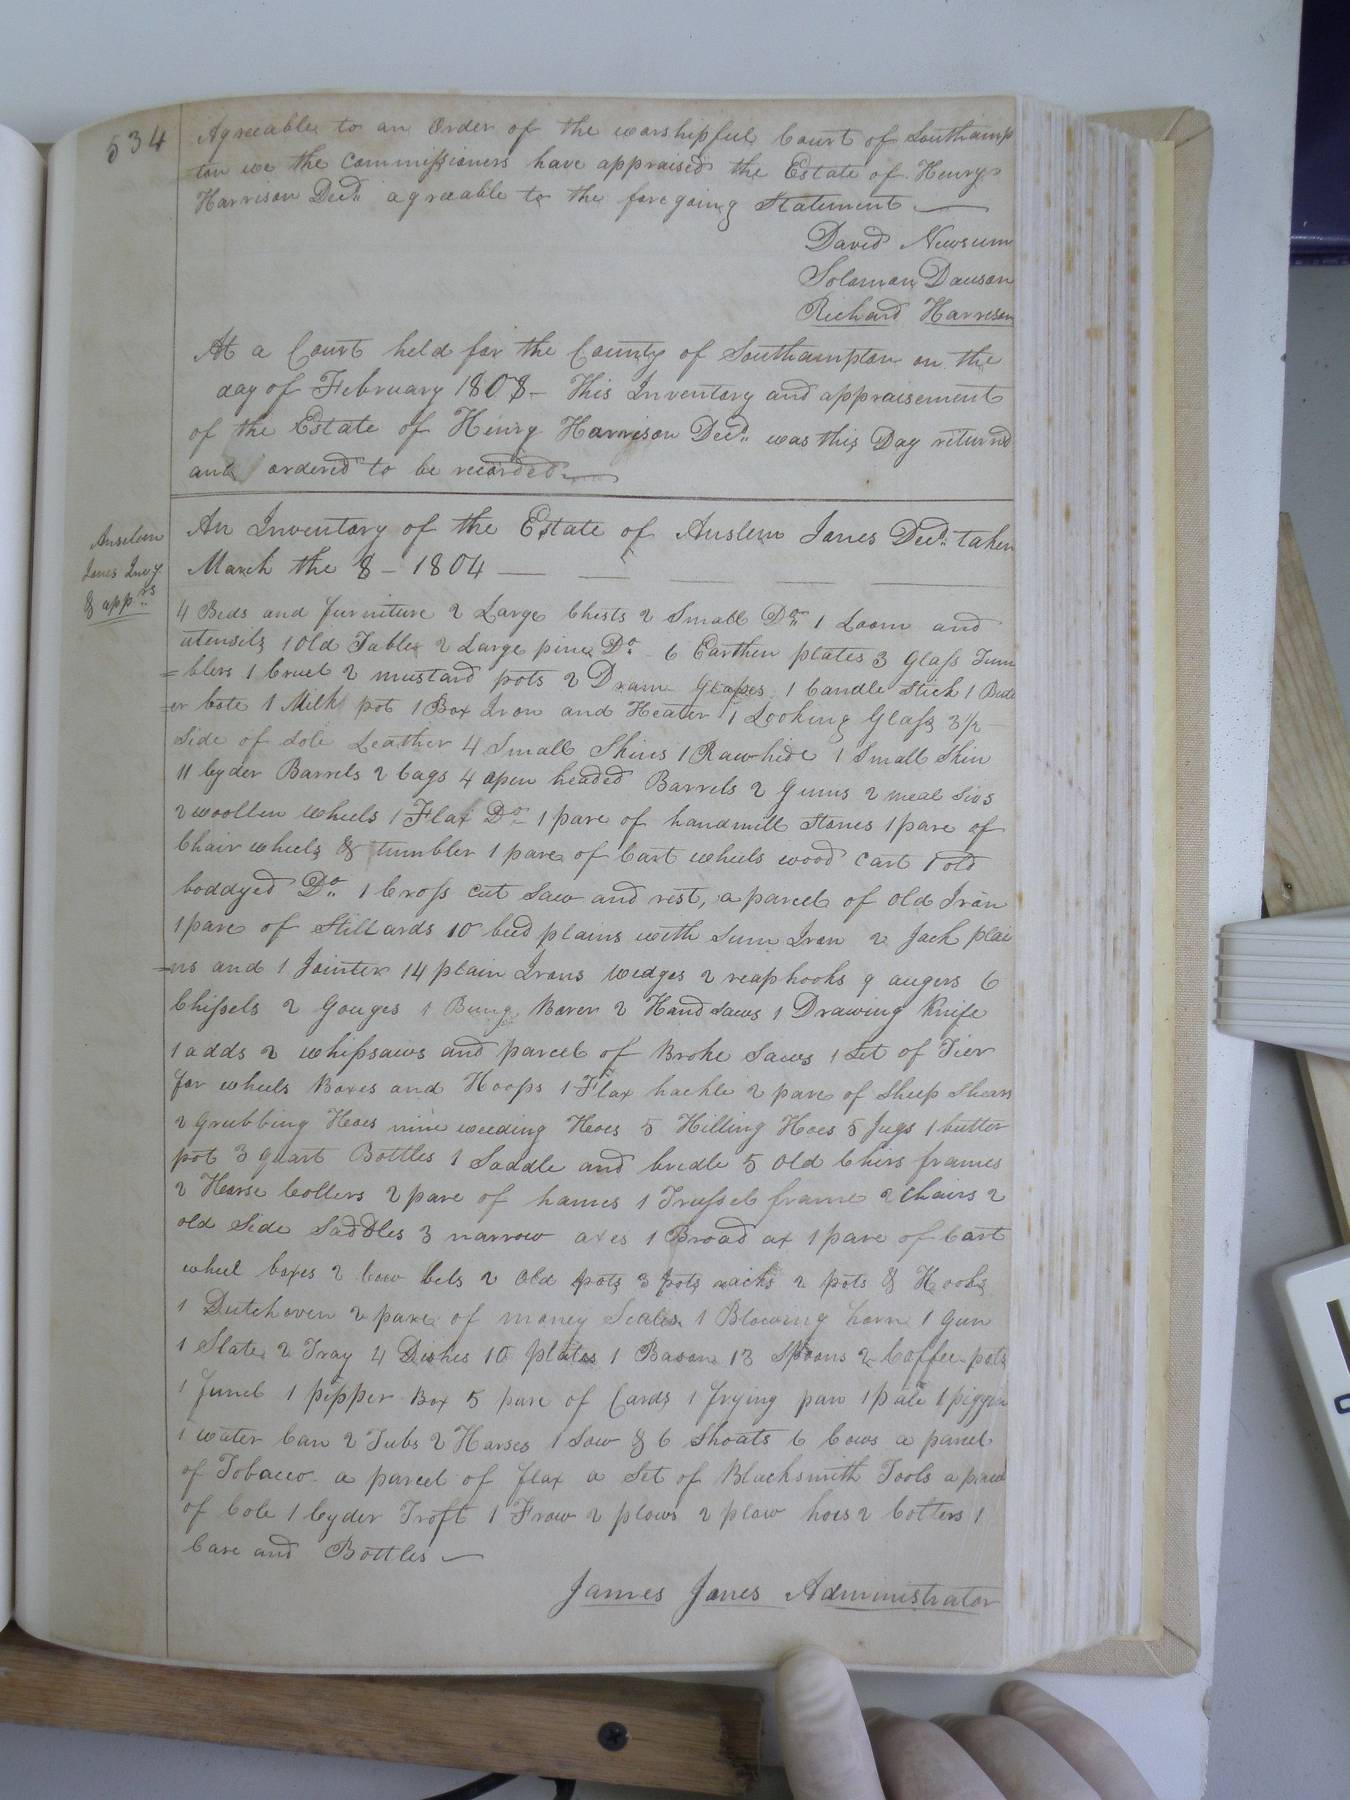 534
Agreeable to an Order of the worshipful Court of Southamp
ton we the Commissioners have appraised the Estate of Henry
Harrison Decd. agreeable to the foregoing Statement
David Newsum
Solomon Dawson
Richard Harrison
At a Court held for the County of Southampton on the
day of February 1808 - This Inventory and appraisement
of the Estate of Henry Harrison Decd. was this Day returnd
and ordered to be recorded
Anselem
Jones Invy.
& apprs
An Inventory of the Estate of Anslem Jones Decd. taken
March the 8 - 1804
4 Beds and furniture 2 Large Chests 2 Small Do. 1 Loom and
utensils 1 Old Table 2 Large pine Do. 6 Earthen plates 3 Glass Tum
=blers 1 Cruet 2 mustard pots 2 Dram Glasses 1 Candle Stick 1 Butt
=er bote 1 Milk pot 1 Box Iron and Heater 1 Looking Glass 3 1/2
Side of Sole Leather 4 Small Skins 1 Rawhide 1 Small Skin
11 Cyder Barrels 2 Cags 4 open headed Barrels 2 Gums 2 meal Sivs
2 woollen wheels 1 Flax Do. 1 pare of handmill Stones 1 pare of
Chair wheels & tumbler 1 pare of Cart wheels wood Cart 1 old
boddyed Do. 1 Cross cut Saw and rest, a parcel of old Iron
1 pare of Stillards 10 beed plains with Sum Iron 2 Jack plai
=ns and 1 Jointer 14 plain Irons Wedges 2 reaphooks 9 augers 6
Chissels 2 Gouges 1 Bung Borer 2 Hand Saws 1 Drawing Knife
1 adds 2 whipsaws and parcel of Broke Saws 1 Set of Tier
for wheels Boxes and Hoops 1 Flax hackle 2 pare of Sheep Shears
2 Grubbing Hoes nine weeding Hoes 5 Hilling Hoes 5 Jugs 1 butter
pot 3 quart Bottles 1 Saddle and bridle 5 old Chirs frames
2 Horse Collers 2 pare of hames 1 Trussel frame 2 Chairs 2
old Side Saddles 3 narrow axes 1 Broad ax 1 pare of Cart
wheel boxes 2 Cow bels 2 old pots 3 pots racks 2 pots & Hooks
1 Dutchoven 2 pare of money Scales 1 Blowing horn 1 Gun
1 Slate 2 Tray 4 Dishes 10 plates 1 Bason 13 Spoons 2 Coffee pots
1 funel 1 pepper Box 5 pare of Cards 1 frying pan 1 pale 1 piggin
1 water Can 2 Tubs 2 Horses 1 Sow & 6 Shoats 6 Cows a parcel
of Tobacco a parcel of flax a Set of Blacksmith Tools a parcel
of Cole 1 Cyder Troft 1 Frow 2 plows 2 plow hoes 2 Colters 1
Case and Bottles
James Jones Administrator